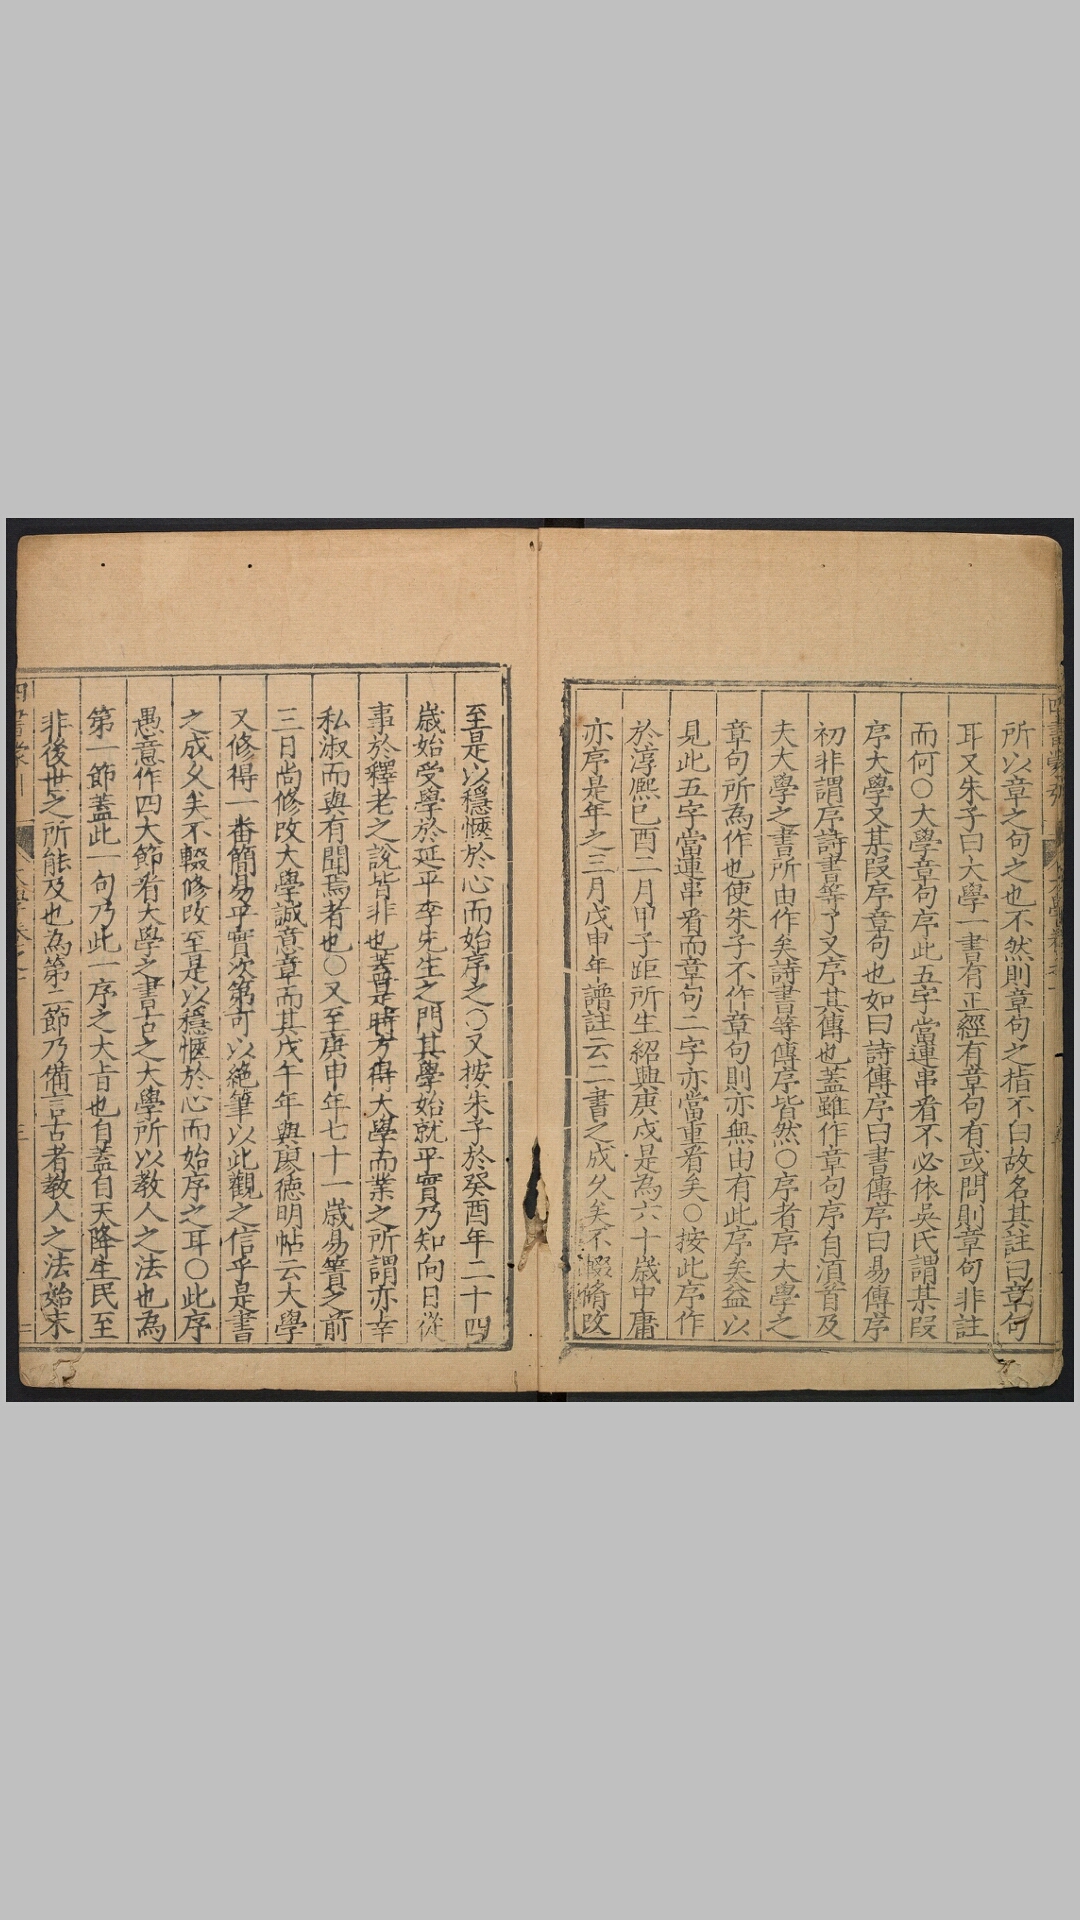 所以章之句之也不然則章句之指不白故名其註曰章句
耳又朱子曰大學一書有正經有章句有或問則章句非註
而何○大學章句序此五字當連串看不必依吳氏謂某段
序大學又某段序章句也如曰詩傳序曰書傳序曰易傳序
初非謂序詩書等了又序其傳也蓋雖作章句序自湏首及
夫大學之書所由作矣詩書等傳序皆然○序者序大學之
章句所為作也使朱子不作章句則亦無由有此序矣益以
見此五字當連串看而章句二字亦當重看矣○按此序作
於淳熈己酉二月甲子距所生紹興庚戌是為六十歳中庸
亦序是年之三月戊申年譜註云二書之成乆矣不輟脩改
至是以穩愜於心而始序之○又按朱子於癸酉年二十四
歳始受學於延平李先生之門其學始就平實乃知向日從
事於釋老之說皆非也蓋是時方得大學而業之所謂亦幸
私淑而與有聞焉者也○又至庚申年七十一歳易簀之前
三日尚修改大學誠意章而其戊午年與廖德明帖云大學
又修得一畨簡易平實次第可以絶筆以此觀之信乎是書
之成乆矣不輟修改至是以穩愜於心而始序之耳○此序
愚意作四大節看大學之書古之大學所以教人之法也為
第一節蓋此一句乃此一序之大旨也自蓋自天降生民至
非後世之所能及也為第二節乃備言古者教人之法始末